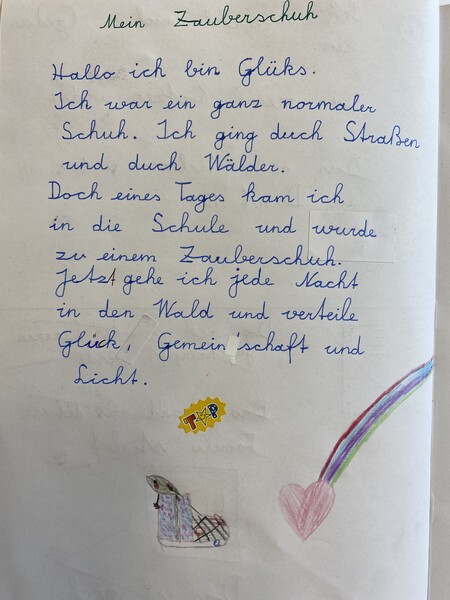 Mein Zauberschuh
Hallo ich bin Glüks.
Ich war ein ganz normaler
Schuh. Ich ging duch Straßen
und duch Wälder.
Doch eines Tages kam ich
in die Schule und wurde
zu einem Zauberschuh.
Jetzt gehe ich jede Nacht
in den Wald und verteile
Glück, Gemeinschaft und
Licht.
TOP